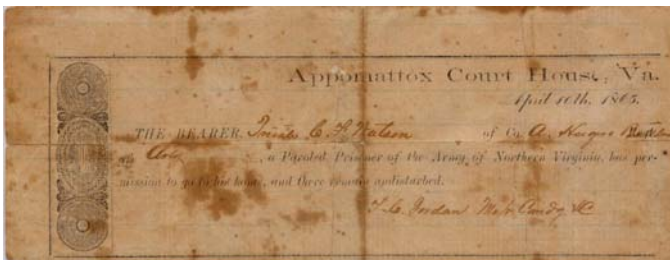 Appomattox Court House, Va.
April 10th, 1865.
THE BEARER, Private C. Watson of Co. A, Hugers
of Art, a Paroled Prisoner of the Army of Northern Virginia, has per-
mission to go to his home, and there remain undisturbed.
Jordan Maj Comdg